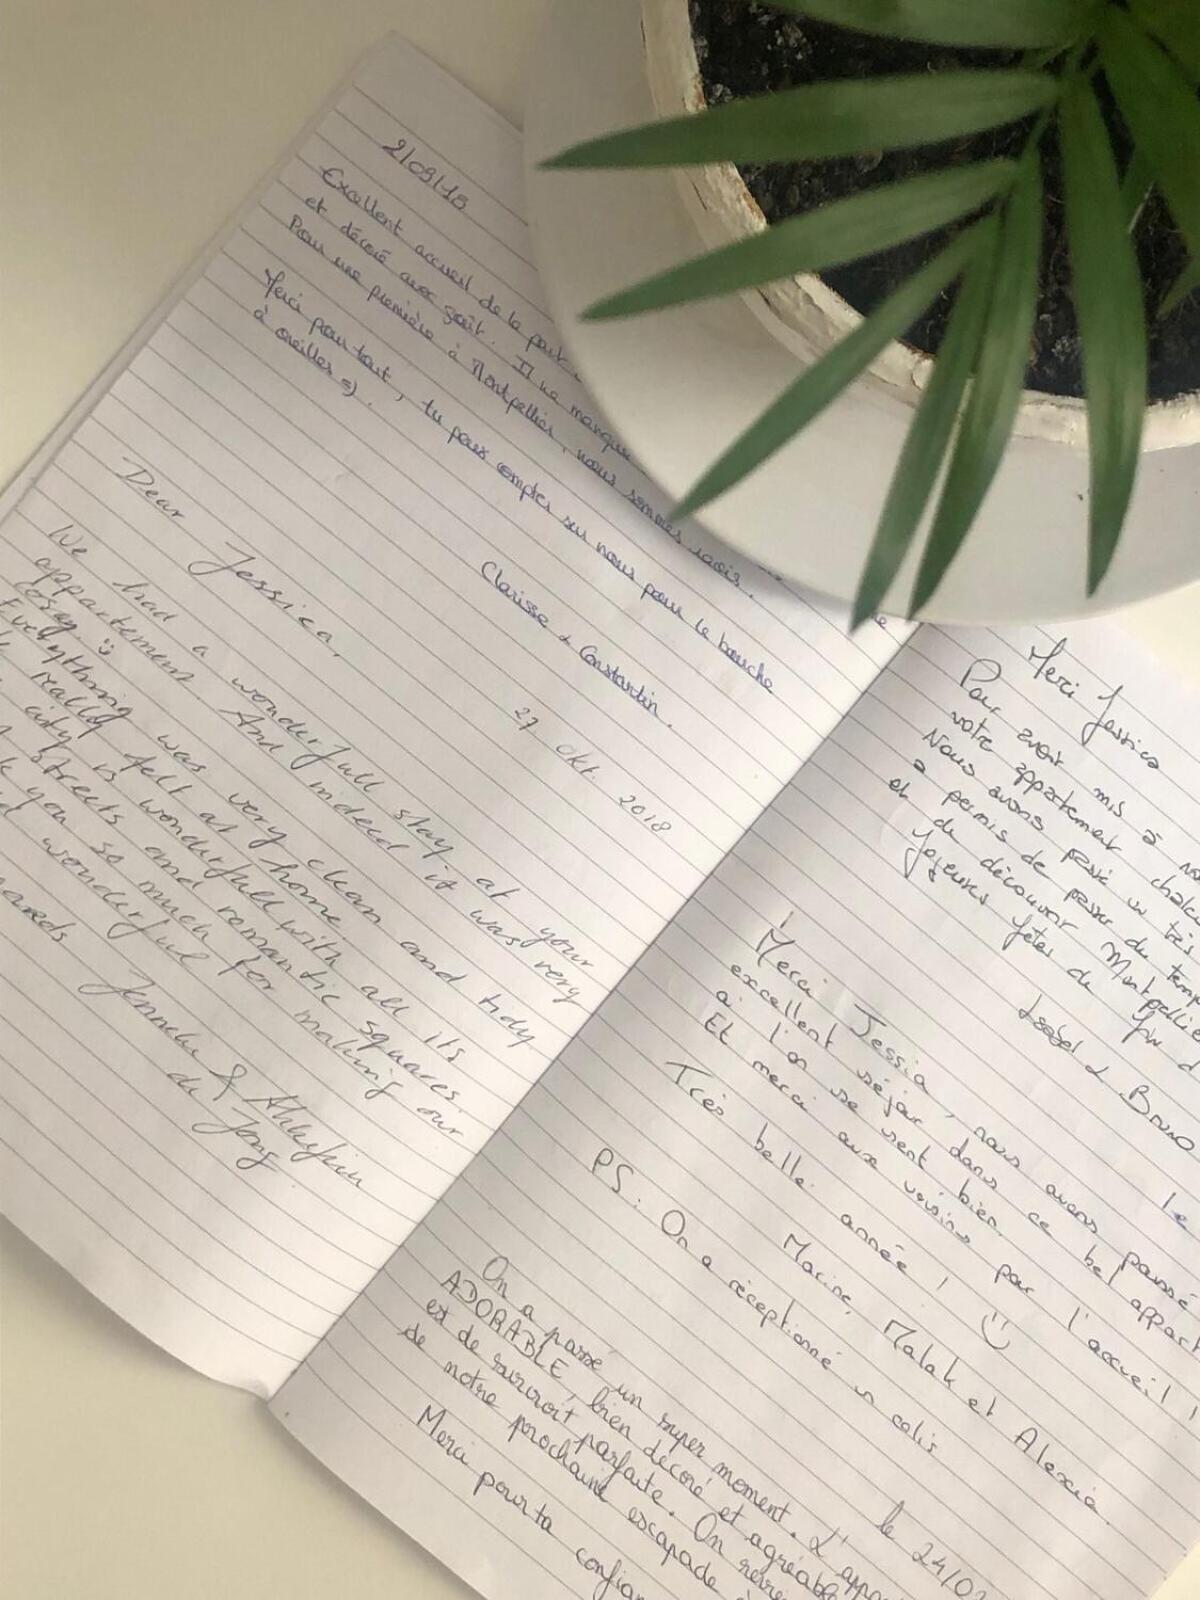 2/09/18
Excellent accueil de la part
et décoré avec goût. Il ne manque
Pour une première à Montpellier, nous sommes ravis.
Merci pour tout, tu peux compter sur nous pour le bouche
à oreilles =).
Clarisse & Constantin.
27 okt 2018
Dear Jessica,
We had a wonderfull stay at your
appartement. And indeed it was very
cosy. ☺
Everything was very clean and tidy
really felt at home.
city is wonderfull with all its
streets and romantic squares.
you so much for making our
wonderful
Janneke &
de Jong
Merci Jessica
Pour avoir mis à
votre appartement
Nous avons passé un très
a permis de passer du temps
et de découvrir Montpellier
Joyeuses fêtes de fin d
Isabel & Bruno
le
Merci Jessia, nous avons passé
excellent séjour dans ce bel appart
où l'on se sent bien.
Et merci aux voisins par l'accueil!
Très belle année! ☺
Marine, Malak et Alexia.
PS: On a réceptionné un colis
le 24/02
On a passé un super moment. L'appa
ADORABLE, bien décoré et agréable
est de surcroît parfaite. On
de notre prochaine escapade à
Merci pour ta confian